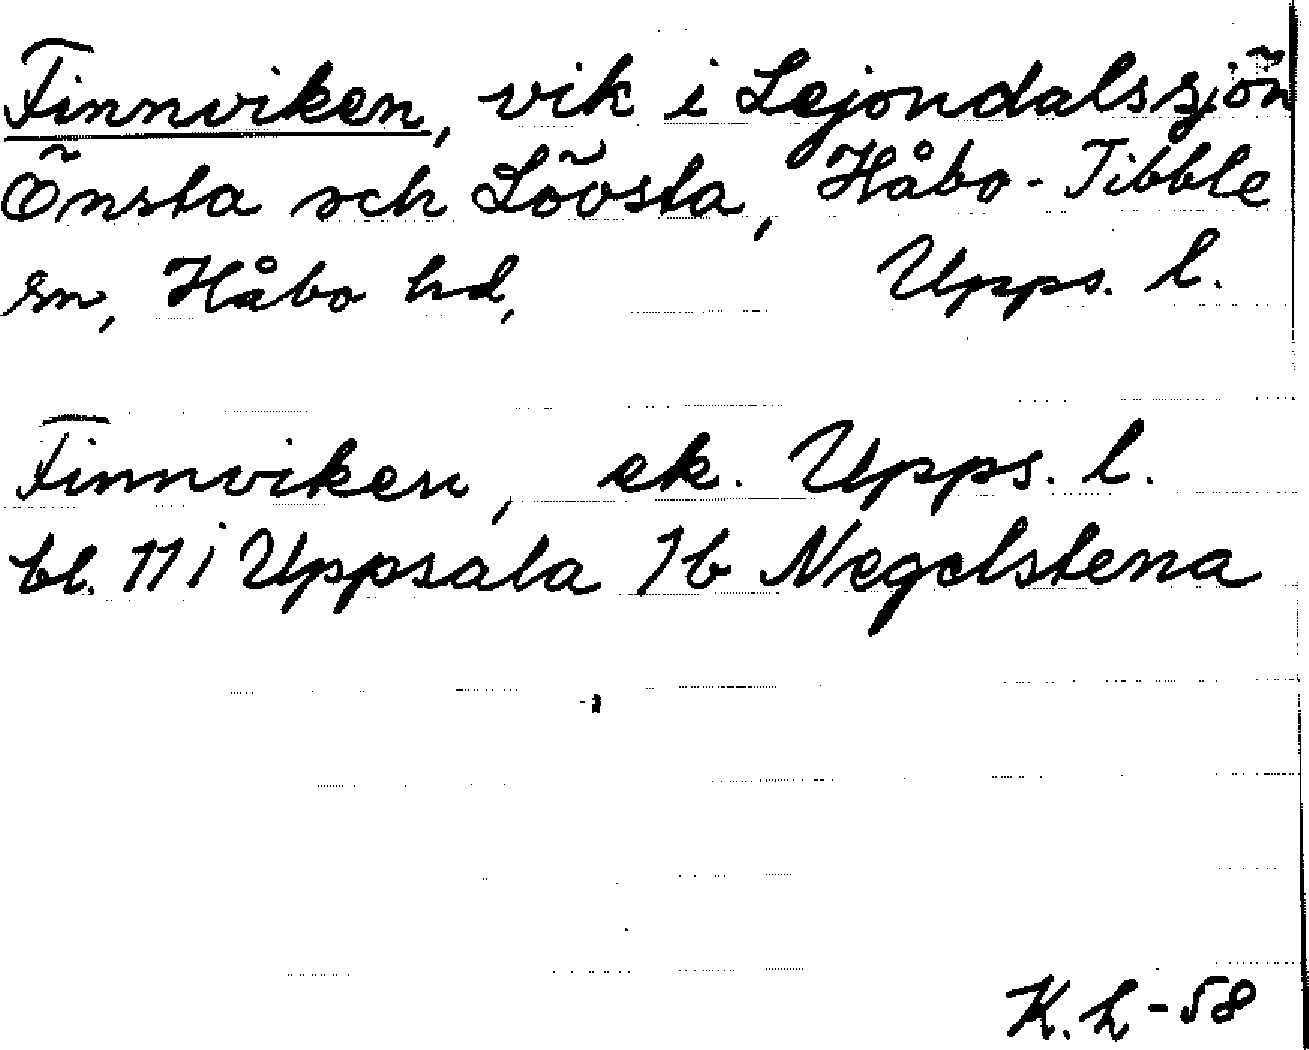 Finnviken, vik i Lejondalssjön
Önsta och Lövsta, Håbo-Tibble
sn, Håbo hd, Upps. l.
Finnviken, ek. Upps. l.
bl. 11 i Uppsala 7b Nægelstena
K.h-58